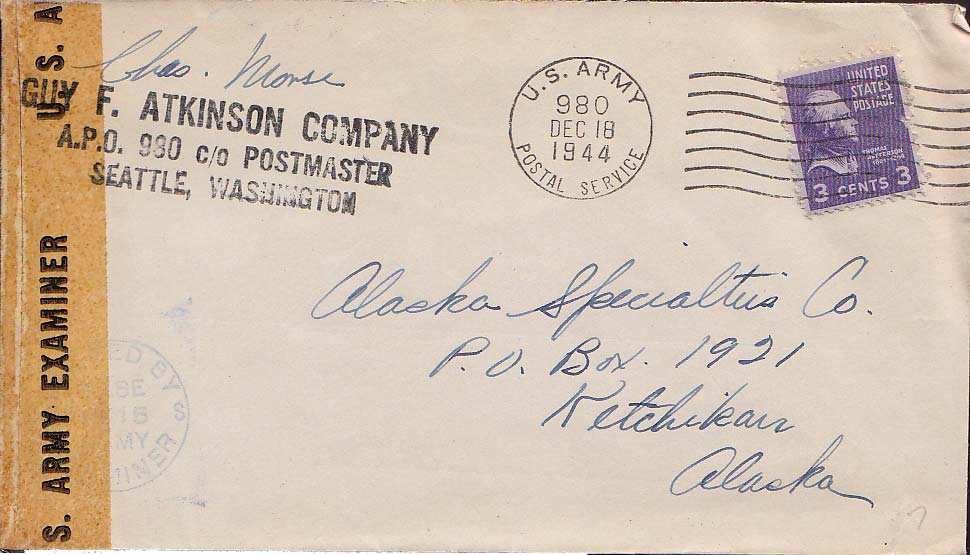 U. S. A
S. ARMY EXAMINER
Chas. Morse
GUY F. ATKINSON COMPANY
A.P.O. 980 c/o POSTMASTER
SEATTLE, WASHINGTON
U.S. ARMY
980
DEC 18
1944
POSTAL SERVICE
UNITED
STATES
POSTAGE
THOMAS
JEFFERSON
3 CENTS 3
Alaska Specialties Co.
P.O. Box. 1921
Ketchikan
Alaska
ED BY
MY
MINER
S
7